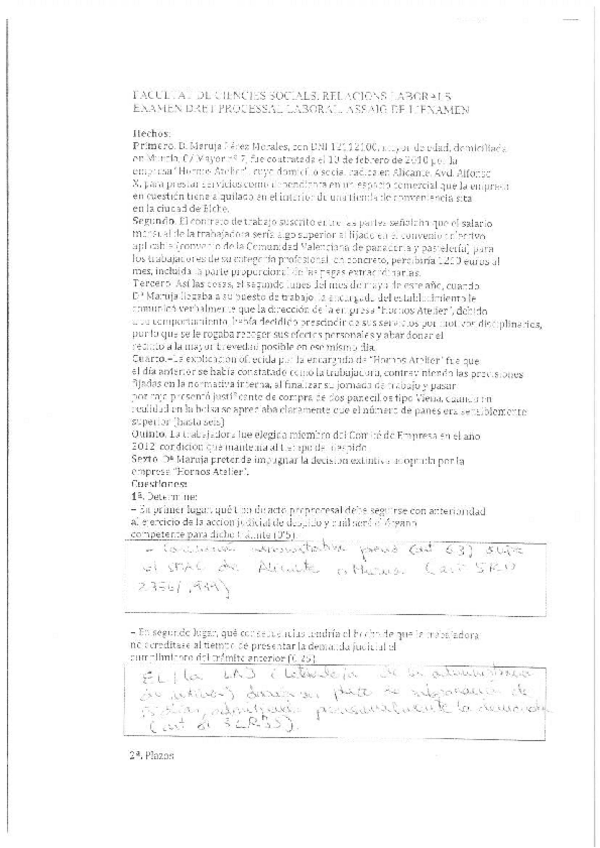 FACULTAT DE CIENCIES SOCIALS. RELACIONS LABORALS
EXAMEN DRET PROCESSAL LABORAL. ASSAIG DE L'EXAMEN
Hechos:
Primero. D. Maruja Pérez Morales, con DNI 12112100, mayor de edad, domiciliada
en Murcia, C/ Mayor nº 7, fue contratada el 10 de febrero de 2010 por la
empresa "Hornos Atelier", cuyo domicilio social radica en Alicante, Avd. Alfonso
X, para prestar servicios como dependienta en un espacio comercial que la empresa
en cuestión tiene alquilado en el interior de una tienda de conveniencia sita
en la ciudad de Elche.
Segundo. El contrato de trabajo suscrito entre las partes señalaba que el salario
mensual de la trabajadora sería algo superior al fijado en el convenio colectivo
aplicable (convenio de la Comunidad Valenciana de panadería y pastelería) para
los trabajadores de su categoría profesional, en concreto, percibiría 1200 euros al
mes, incluida la parte proporcional de las pagas extraordinarias.
Tercero. Así las cosas, el segundo lunes del mes de mayo de este año, cuando
Dª Maruja llegaba a su puesto de trabajo, la encargada del establecimiento le
comunicó verbalmente que la dirección de la empresa "Hornos Atelier", debido
a su comportamiento, había decidido prescindir de sus servicios por motivos disciplinarios,
punto que se le rogaba recoger sus efectos personales y abandonar el
recinto a la mayor brevedad posible en ese mismo día.
Cuarto.-La explicación ofrecida por la encargada de "Hornos Atelier" fue que
el día anterior se había constatado como la trabajadora, contraviniendo las precisiones
fijadas en la normativa interna, al finalizar su jornada de trabajo y pasar
por caja presentó justificante de compra de dos panecillos tipo Viena, cuando en
realidad en la bolsa se apreciaba claramente que el número de panes era sensiblemente
superior (hasta seis)
Quinto. La trabajadora fue elegida miembro del Comité de Empresa en el año
2012, condición que mantenía al tiempo del despido.
Sexto. Dª Maruja pretende impugnar la decisión extintiva adoptada por la
empresa "Hornos Atelier".
Cuestiones:
1ª. Determine:
– En primer lugar, qué tipo de acto preprocesal debe seguirse con anterioridad
al ejercicio de la acción judicial de despido y cuál será el órgano
competente para dicho trámite (0'5).
- administrativa previa (art 63)
el SMAC de Alicante o Murcia (art 5 RD
– En segundo lugar, qué consecuencias tendría el hecho de que la trabajadora
no acreditase al tiempo de presentar la demanda judicial el
cumplimiento del trámite anterior (0'25)
EL / la LAJ (de la administración
de justicia) plazo de de
días, provisionalmente la demanda
(art 81 LRJS).
2ª. Plazos